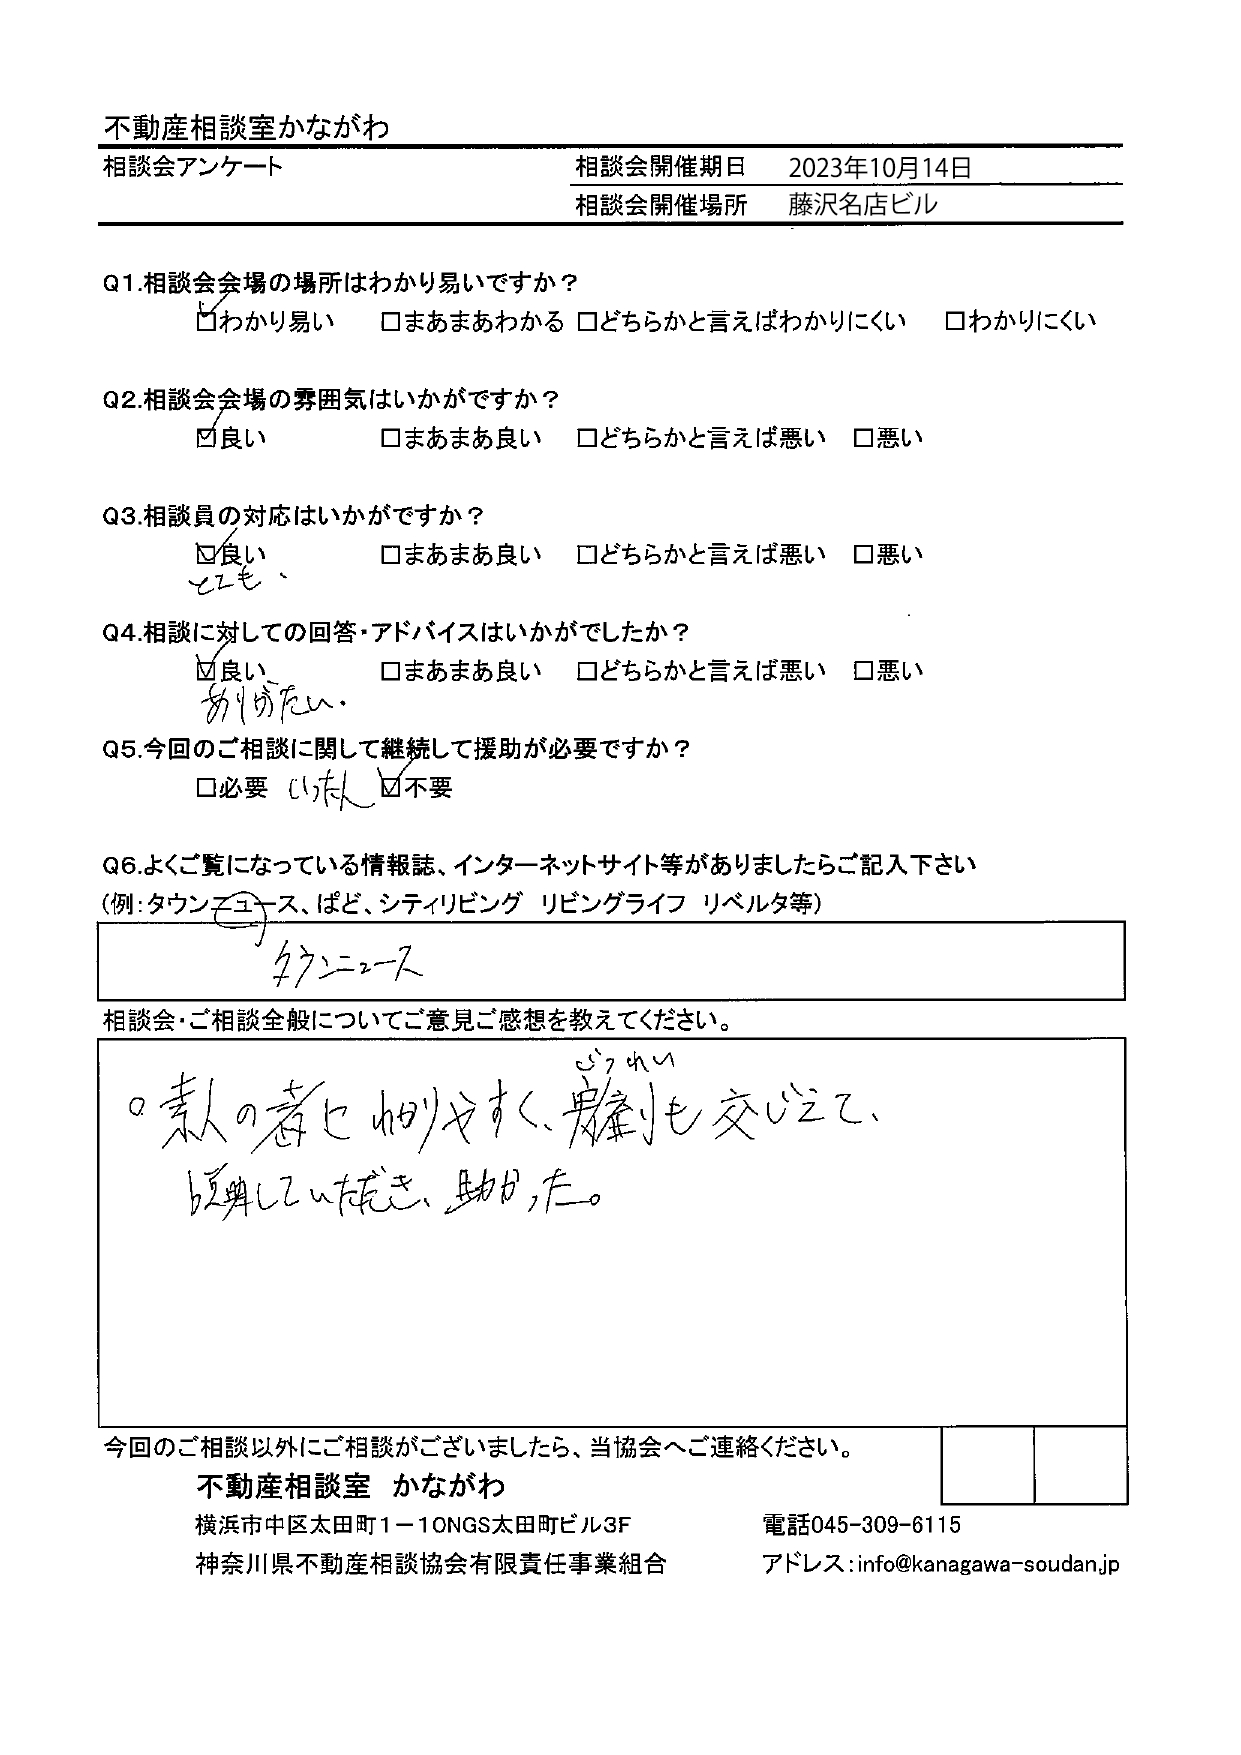 不動産相談室かながわ
相談会アンケート 相談会開催期日 2023年10月14日
相談会開催場所 藤沢名店ビル
Q1.相談会会場の場所はわかり易いですか?
☑わかり易い □まあまあわかる □どちらかと言えばわかりにくい □わかりにくい
Q2.相談会会場の雰囲気はいかがですか?
☑良い □まあまあ良い □どちらかと言えば悪い □悪い
Q3.相談員の対応はいかがですか?
☑良い □まあまあ良い □どちらかと言えば悪い □悪い
とても、
Q4.相談に対しての回答・アドバイスはいかがでしたか?
☑良い □まあまあ良い □どちらかと言えば悪い □悪い
ありがたい.
Q5.今回のご相談に関して継続して援助が必要ですか?
□必要 いったん ☑不要
Q6.よくご覧になっている情報誌、インターネットサイト等がありましたらご記入下さい
(例:タウンニュース、ぱど、シティリビング リビングライフ リベルタ等)
タウンニュース
相談会・ご相談全般についてご意見ご感想を教えてください。
じつれい
○素人の者にわかりやすく、も交じえて、
説明していただき、助かった。
今回のご相談以外にご相談がございましたら、当協会へご連絡ください。
不動産相談室 かながわ
横浜市中区太田町1-10NGS太田町ビル3F 電話045-309-6115
神奈川県不動産相談協会有限責任事業組合 アドレス:info@kanagawa-soudan.jp